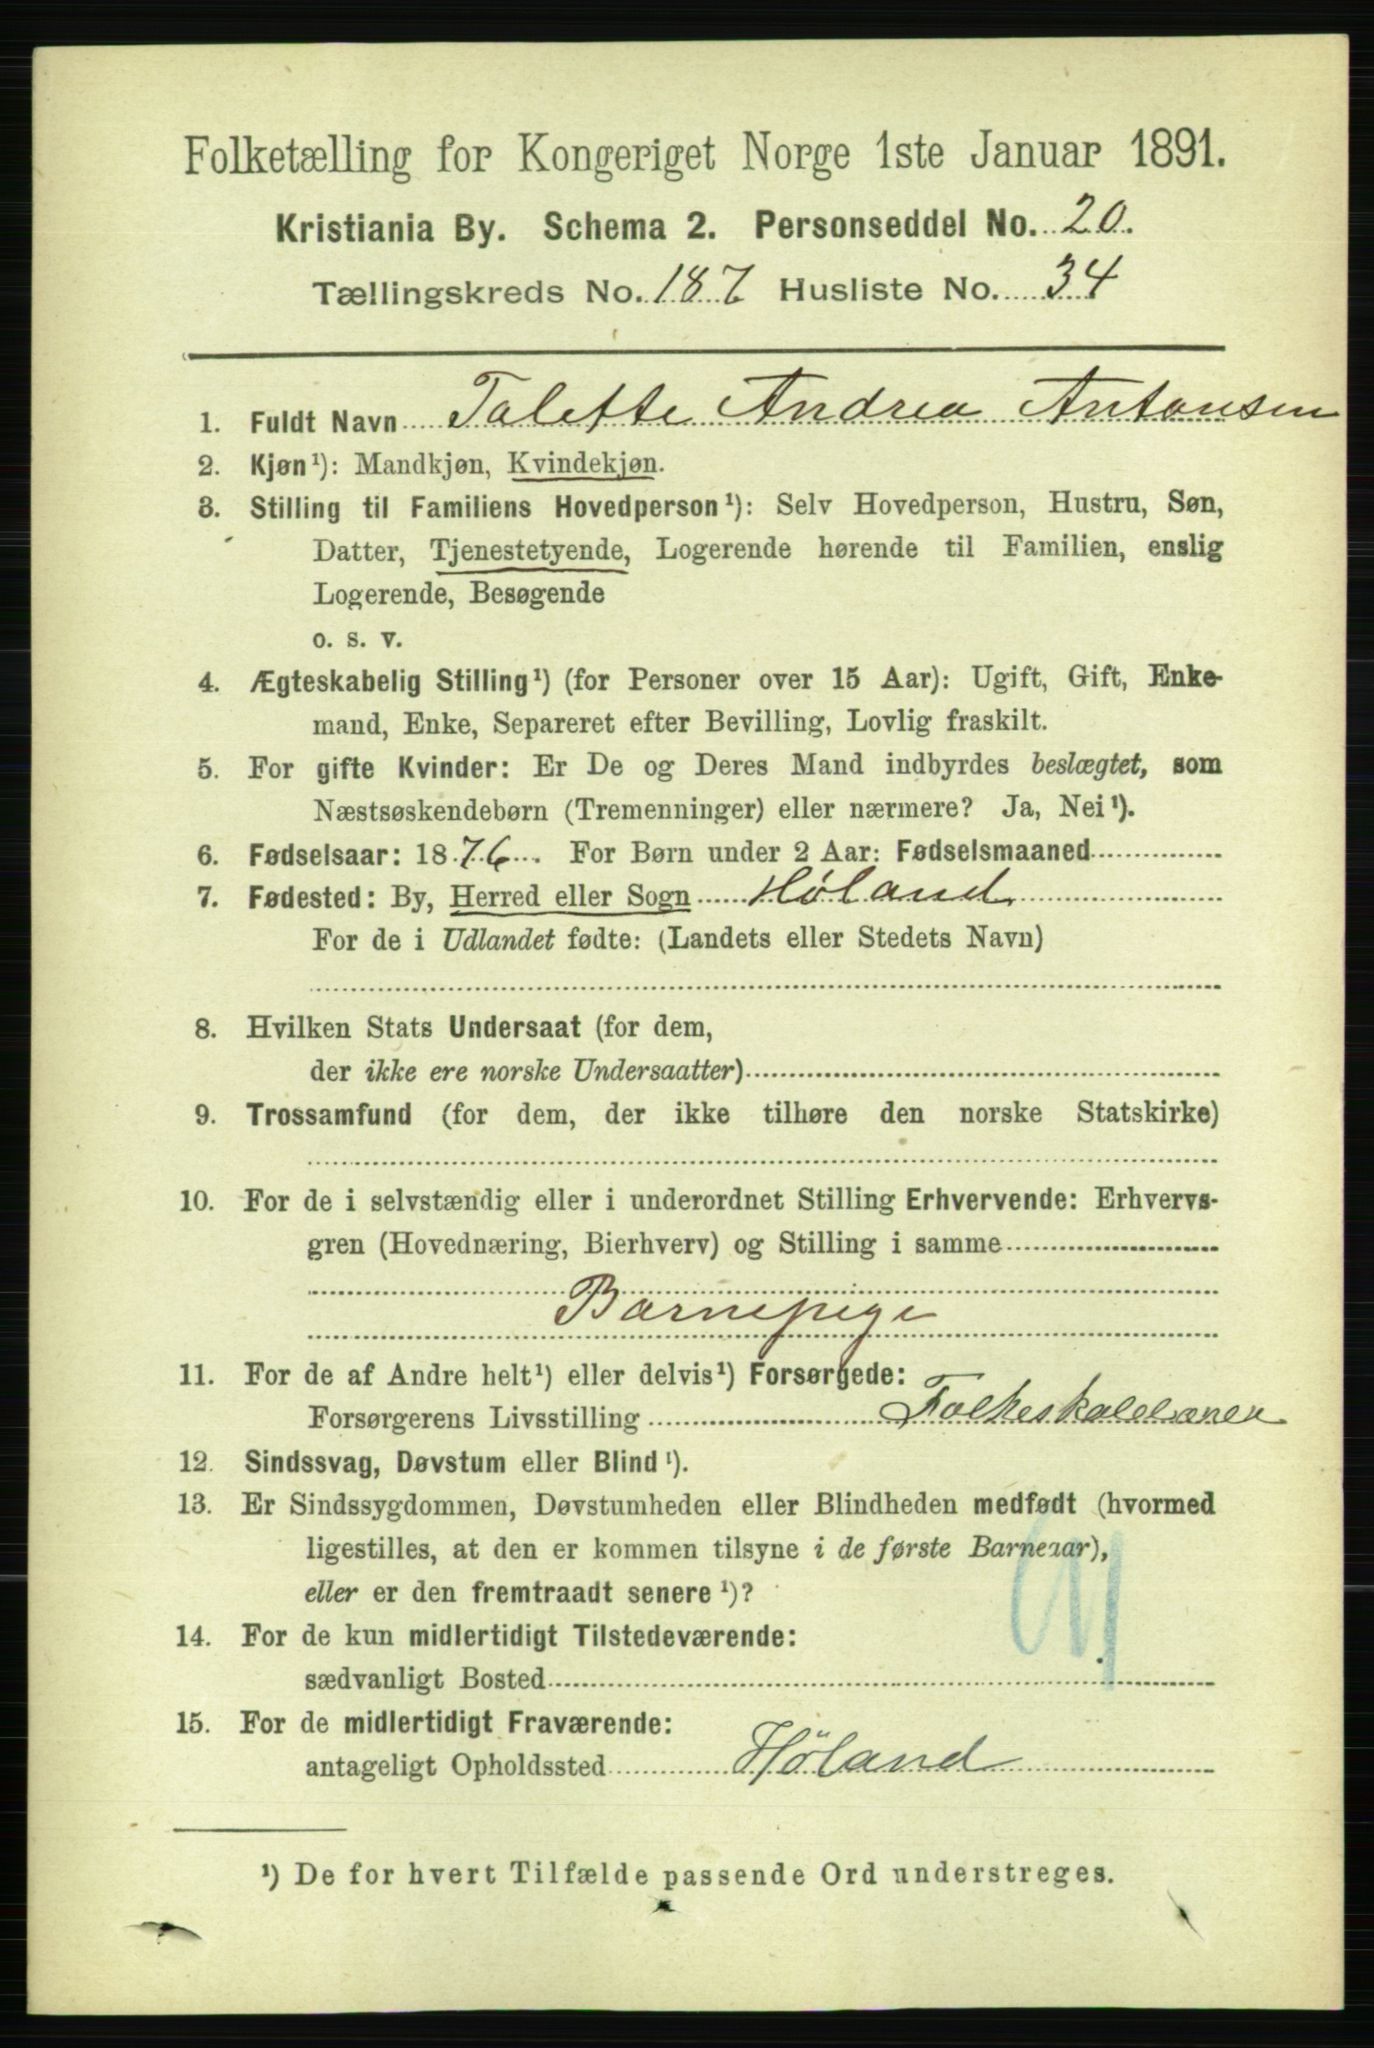 Folketælling for Kongeriget Norge 1ste Januar 1891.
Kristiania By. Schema 2. Personseddel No. 20.
Tællingskreds No. 187 Husliste No. 34
1. Fuldt Navn Talette Andrea Antonsen
2. Kjøn¹): Mandkjøn, Kvindekjøn.
3. Stilling til Familiens Hovedperson¹): Selv Hovedperson, Hustru, Søn,
Datter, Tjenestetyende, Logerende hørende til Familien, enslig
Logerende, Besøgende
o. s. v.
4. Ægteskabelig Stilling¹) (for Personer over 15 Aar): Ugift, Gift, Enke-
mand, Enke, Separeret efter Bevilling, Lovlig fraskilt.
5. For gifte Kvinder: Er De og Deres Mand indbyrdes beslægtet, som
Næstsøskendebørn (Tremenninger) eller nærmere? Ja, Nei¹).
6. Fødselsaar: 1876. For Børn under 2 Aar: Fødselsmaaned
7. Fødested: By, Herred eller Sogn Høland
For de i Udlandet fødte: (Landets eller Stedets Navn)
8. Hvilken Stats Undersaat (for dem,
der ikke ere norske Undersaatter)
9. Trossamfund (for dem, der ikke tilhøre den norske Statskirke)
10. For de i selvstændig eller i underordnet Stilling Erhvervende: Erhvervs-
gren (Hovednæring, Bierhverv) og Stilling i samme
Barnepige
11. For de af Andre helt¹) eller delvis¹) Forsørgede:
Forsørgerens Livsstilling
12. Sindssvag, Døvstum eller Blind¹).
13. Er Sindssygdommen, Døvstumheden eller Blindheden medfødt (hvormed
ligestilles, at den er kommen tilsyne i de første Barneaar),
eller er den fremtraadt senere¹)?
14. For de kun midlertidigt Tilstedeværende:
sædvanligt Bosted
15. For de midlertidigt Fraværende:
antageligt Opholdssted Höland
¹) De for hvert Tilfælde passende Ord understreges.